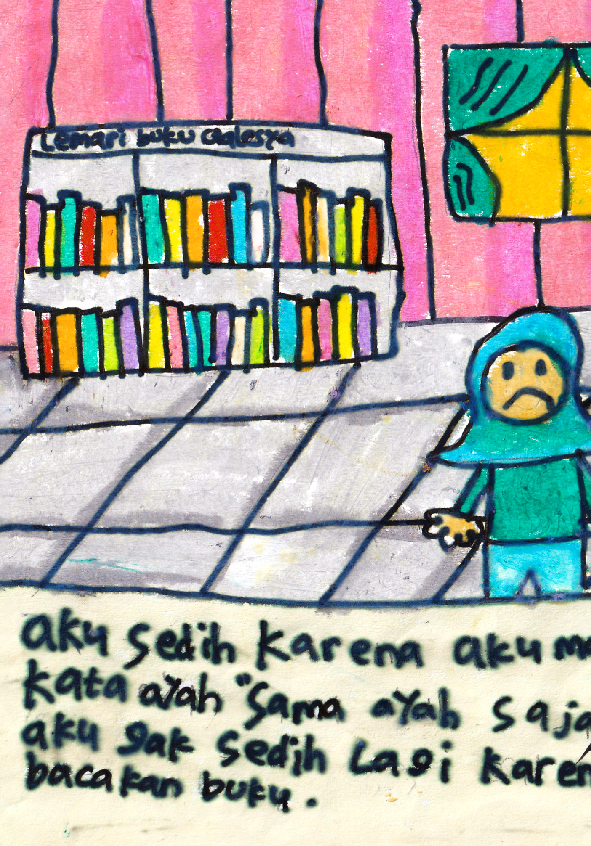 Lemari buku Qalesya
aku sedih karena aku ma
kata ayah "Sama ayah saja
aku gak sedih Lagi karen
bacakan buku.